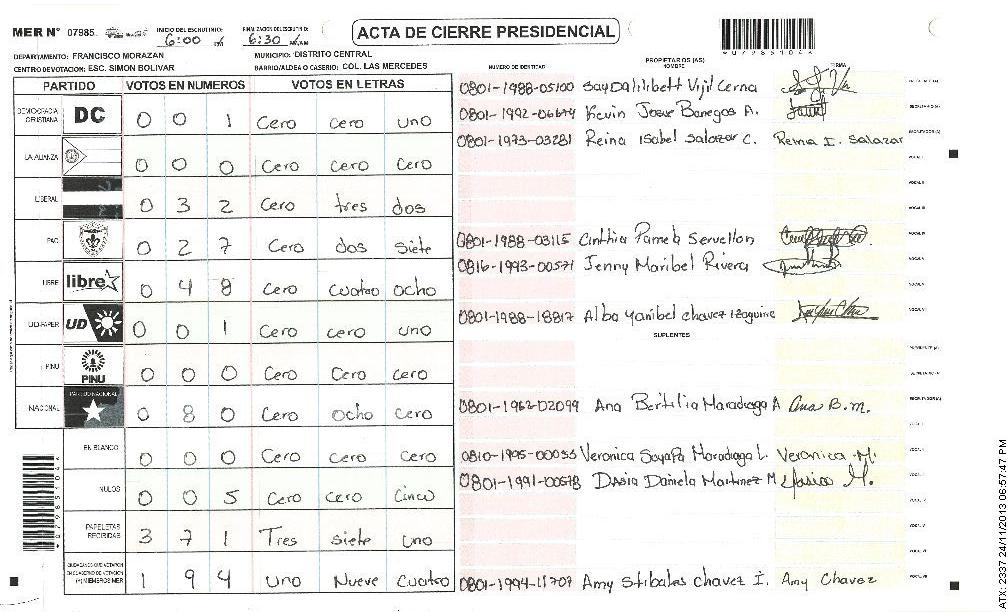 MER N° 07985
INICIO DEL ESCRUTINIO: 6:00
FINALIZACION DEL ESCRUTINIO: 6:30
ACTA DE CIERRE PRESIDENCIAL
DEPARTAMENTO: FRANCISCO MORAZAN
MUNICIPIO: DISTRITO CENTRAL
CENTRO DE VOTACION: ESC. SIMON BOLIVAR
BARRIO/ALDEA O CASERIO: COL. LAS MERCEDES
PARTIDO VOTOS EN NUMEROS VOTOS EN LETRAS
DEMOCRACIA CRISTIANA DC 0 0 1 Cero cero uno
LA ALIANZA 0 0 0 Cero Cero Cero
LIBERAL 0 3 2 Cero tres dos
PAC 0 2 7 Cero dos siete
LIBRE libre 0 4 8 Cero cuatro ocho
UD-FAPER UD 0 0 1 Cero cero uno
PINU PINU 0 0 0 Cero Cero cero
NACIONAL PARTIDO NACIONAL 0 8 0 Cero ocho cero
EN BLANCO 0 0 0 Cero cero cero
NULOS 0 0 5 Cero cero Cinco
PAPELETAS RECIBIDAS 3 7 1 Tres siete uno
CIUDADANOS QUE VOTARON EN CUADERNO DE VOTACION (+) MIEMBROS MER 1 9 4 uno Nueve Cuatro
PROPIETARIOS (AS)
NUMERO DE IDENTIDAD NOMBRE FIRMA
0801-1988-05100 Vijil Cerna
0801-1992- Kevin Josue Banegas A.
0801-1973-03281 Reina Isabel Salazar C. Reina I. Salazar
0801-1988-03115 Cinthia Pamela Servellon
0816-1993-00571 Jenny Maribel Rivera
0801-1988-18817 Alba Yanibel chavez Izaguirre
SUPLENTES
0801-1962-02099 Ana Bertilia Maradiaga A Ana B.M.
0810-1995-00033 Veronica Maradiaga L. Veronica M.
0801-1991-00578 Daniela Martinez M
0801-1994-11707 Amy chavez I. Amy Chavez
ATX: 2337 24/11/2013 06:57:47 PM